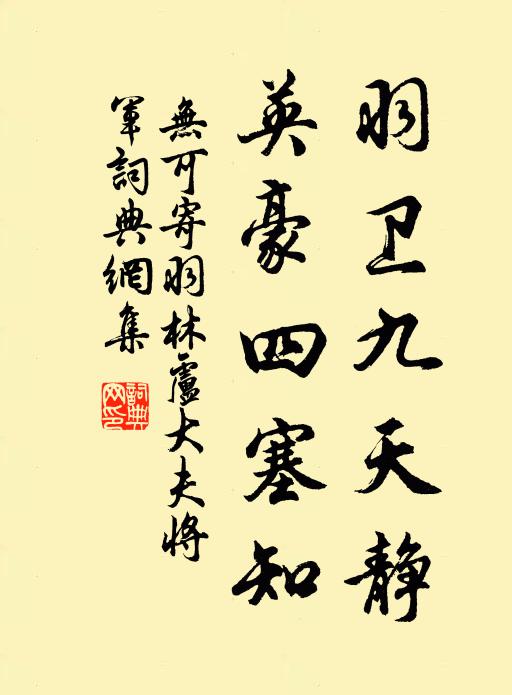 羽卫九天静
英豪四塞知
無可寄羽林盧大夫將
軍詞典網集
詞典
网印